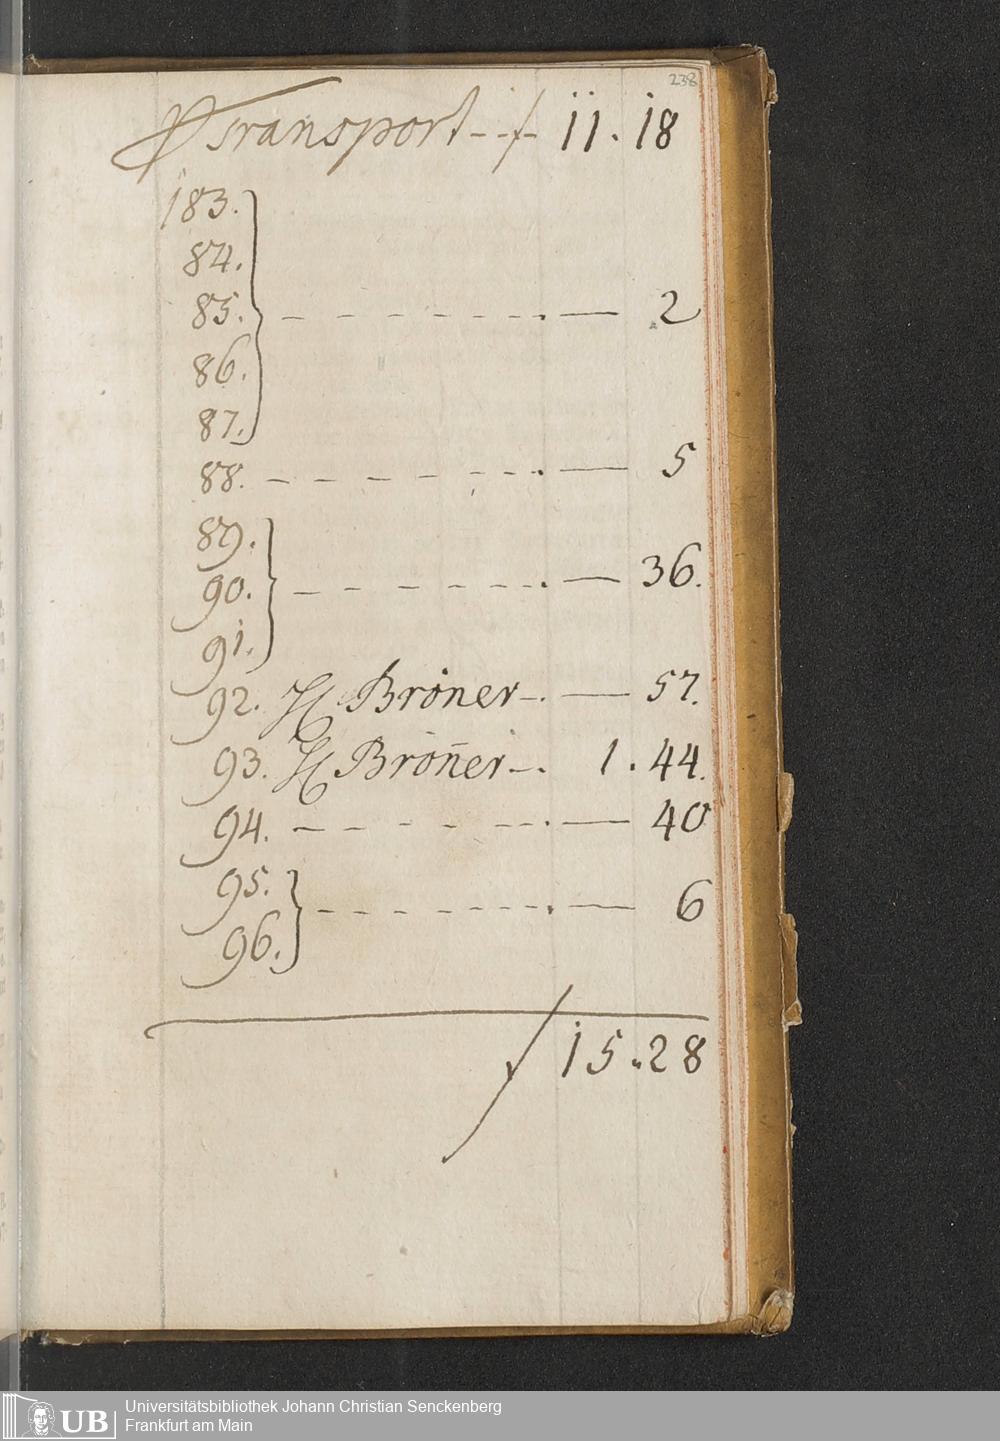 238
Transport - - f 11 . 18
183.
84.
85. - - - - - - . — 2
86.
87.
88. - - - - - - . — 5
89.
90. - - - - - - . — 36.
91.
92. H Bröner - . — 57.
93. H Broñer - . 1 . 44.
94. - - - - - - . — 40
95.
- - - - - - . — 6
96.
f 15 . 28
UB Universitätsbibliothek Johann Christian Senckenberg
Frankfurt am Main